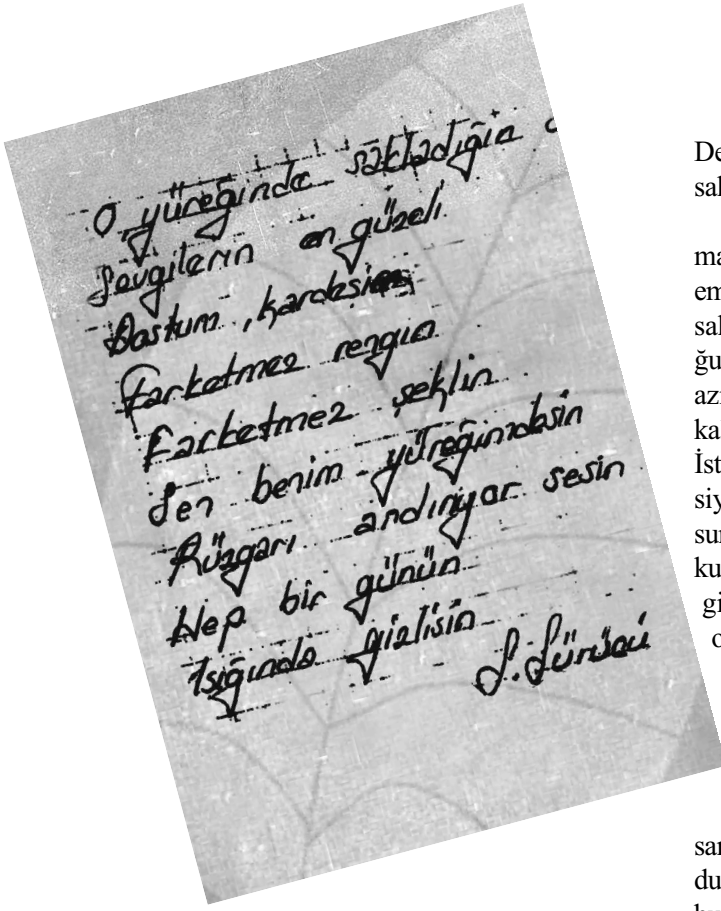 O yüreğinde sakladığın
Sevgilerin en güzeli
Dostum, kardeşim
Farketmez rengin
Farketmez şeklin
Sen benim yüreğimdesin
Rüzgarı andırıyor sesin
Hep bir günün
Işığında gizlisin
S. Sürücü
De
sal
ma
em
sal
ğu
azı
ka
İst
siy
sur
ku
gi
o
sar
du